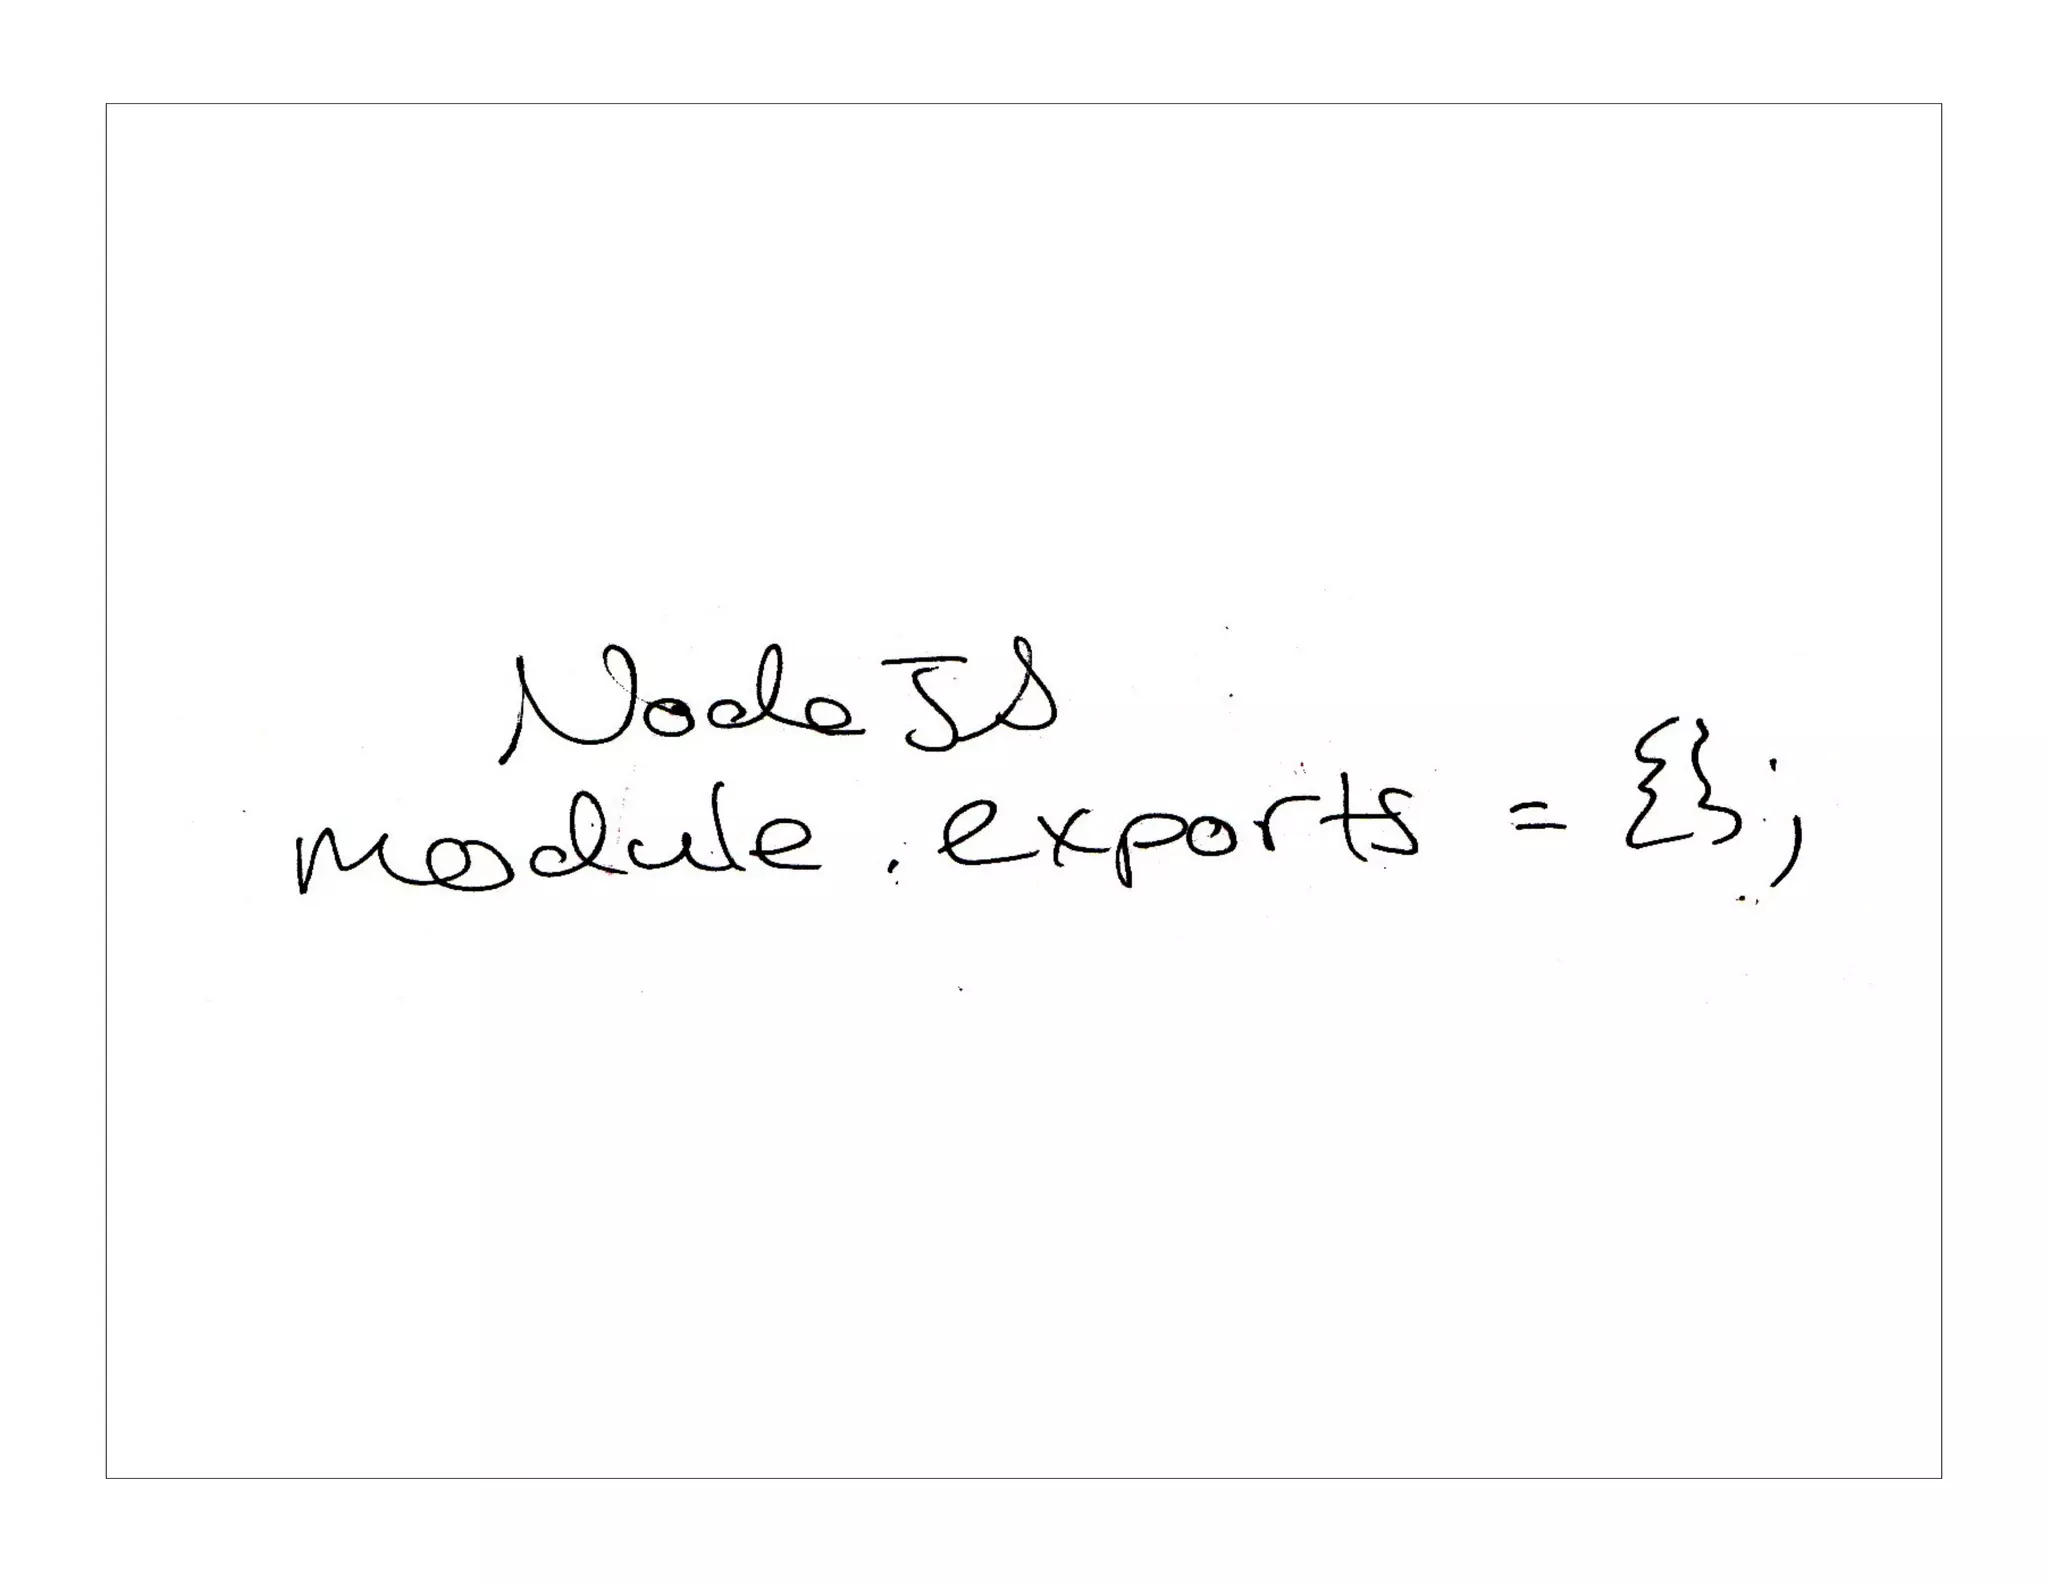 NodeJS
module.exports = {};